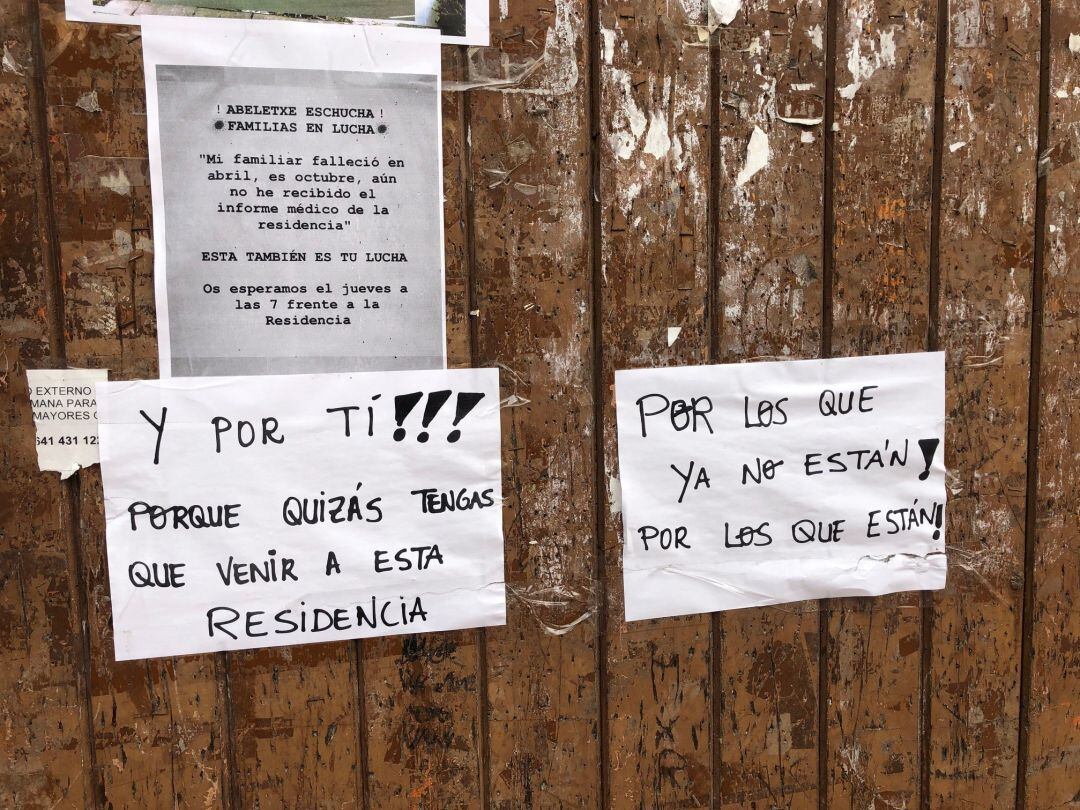 ! ABELETXE ESCHUCHA !
FAMILIAS EN LUCHA
"Mi familiar falleció en
abril, es octubre, aún
no he recibido el
informe médico de la
residencia"
ESTA TAMBIÉN ES TU LUCHA
Os esperamos el jueves a
las 7 frente a la
Residencia
EXTERNO
MANA PARA
MAYORES
641 431 12
Y POR TÍ!!!
PORQUE QUIZÁS TENGAS
QUE VENIR A ESTA
RESIDENCIA
POR LOS QUE
YA NO ESTÁN!
POR LOS QUE ESTÁN!